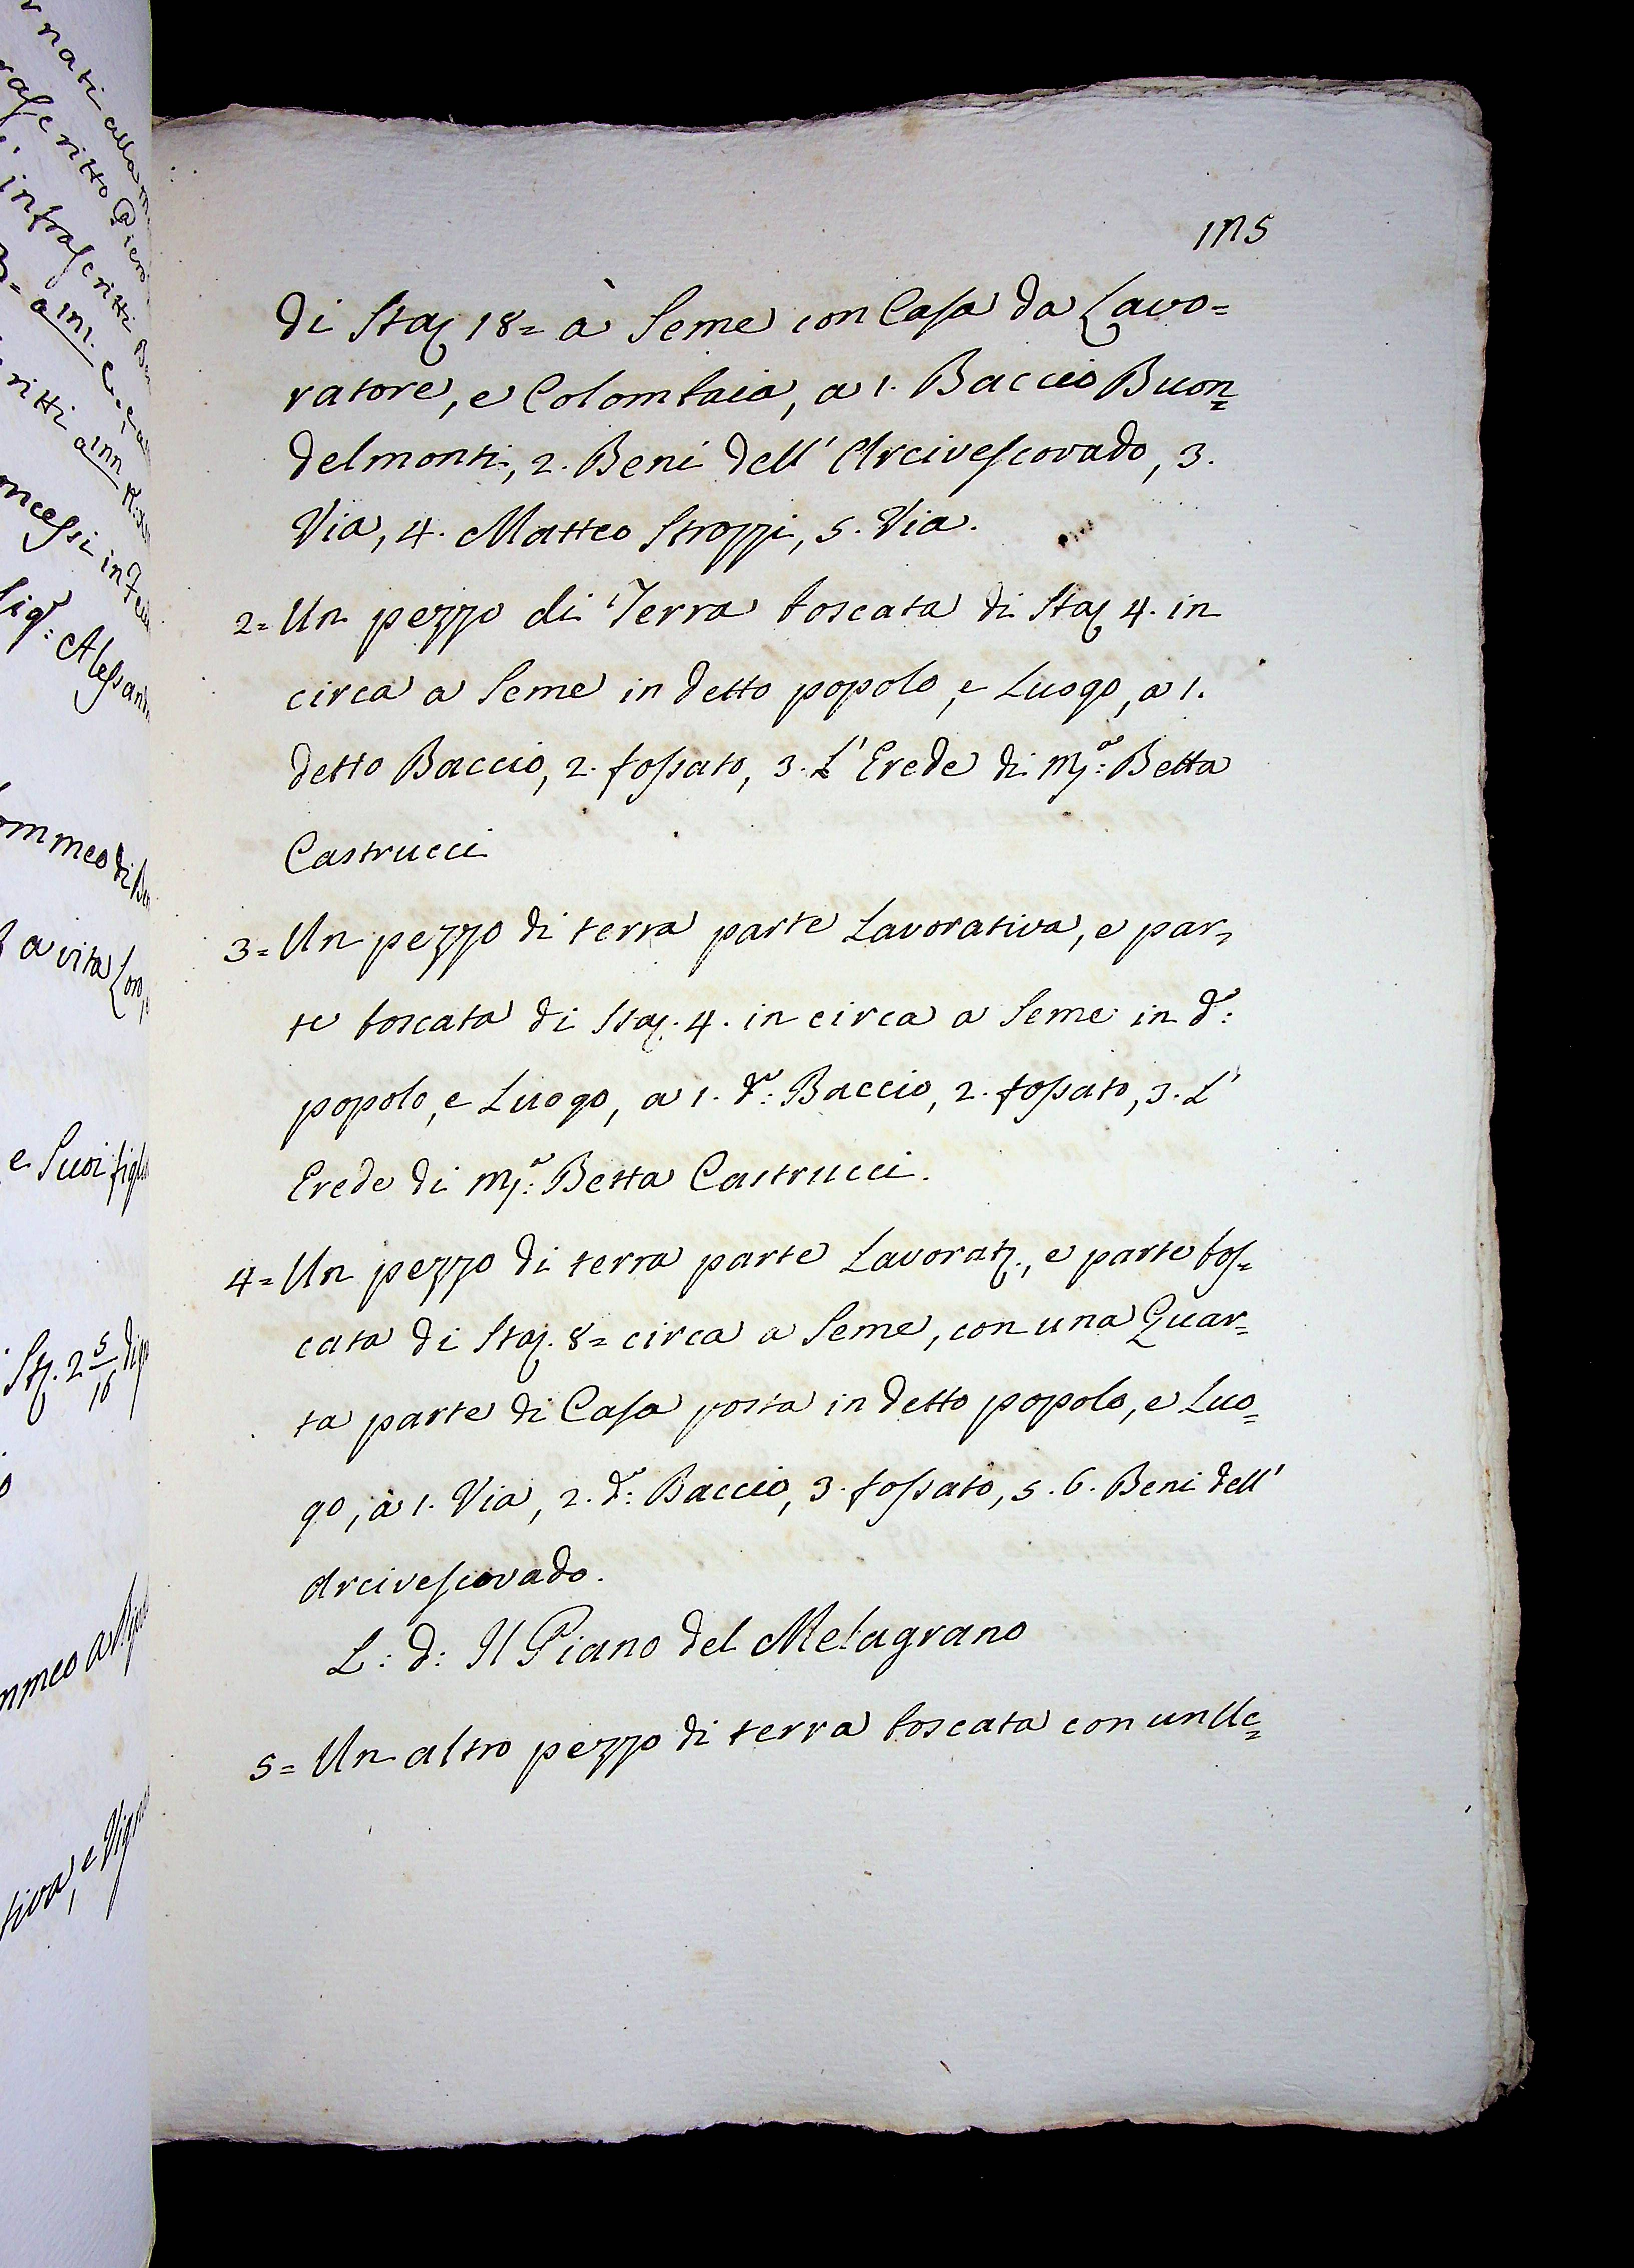 175
di Staj 18= à Seme con Casa da Lavo=
ratore, e Colombaia, a 1. Baccio Buon=
delmonti, 2. Beni dell' Arcivescovado, 3.
Via, 4. Matteo Strozzi, 5. Via.
2= Un pezzo di Terra boscata di Staj 4. in
circa a Seme in detto popolo, e Luogo, a 1.
detto Baccio, 2. fossato, 3. L' Erede di M.ª: Betta
Castrucci
3= Un pezzo di terra parte Lavorativa, e par=
te boscata di Staj. 4. in circa a Seme in d.º:
popolo, e Luogo, a 1. d.º: Baccio, 2. fossato, 3. L'
Erede di M.ª: Betta Castrucci.
4= Un pezzo di terra parte Lavorat., e parte bos=
cata di Staj. 8= circa a Seme, con una Quar=
ta parte di Casa posta in detto popolo, e Luo=
go, à 1. Via, 2. d.º: Baccio, 3. fossato, 5. 6. Beni dell'
Arcivescovado.
L: d: Il Piano del Melagrano
5= Un altro pezzo di terra boscata con un Uc=